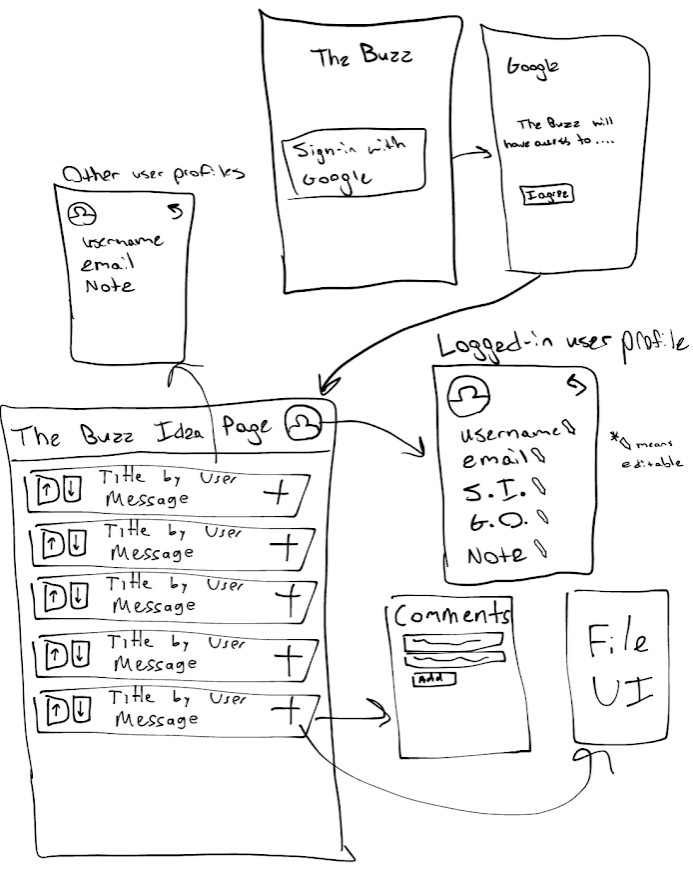 The Buzz
Sign-in with
Google
Google
The Buzz will
have access to ....
I agree
Other user profiles
username
email
Note
Logged-in user profile
username
email
S.I.
G.O.
Note
* means
editable
The Buzz Idea Page
Title by User
Message
Title by User
Message
Title by User
Message
Title by User
Message
Title by User
Message
Comments
Add
File
UI